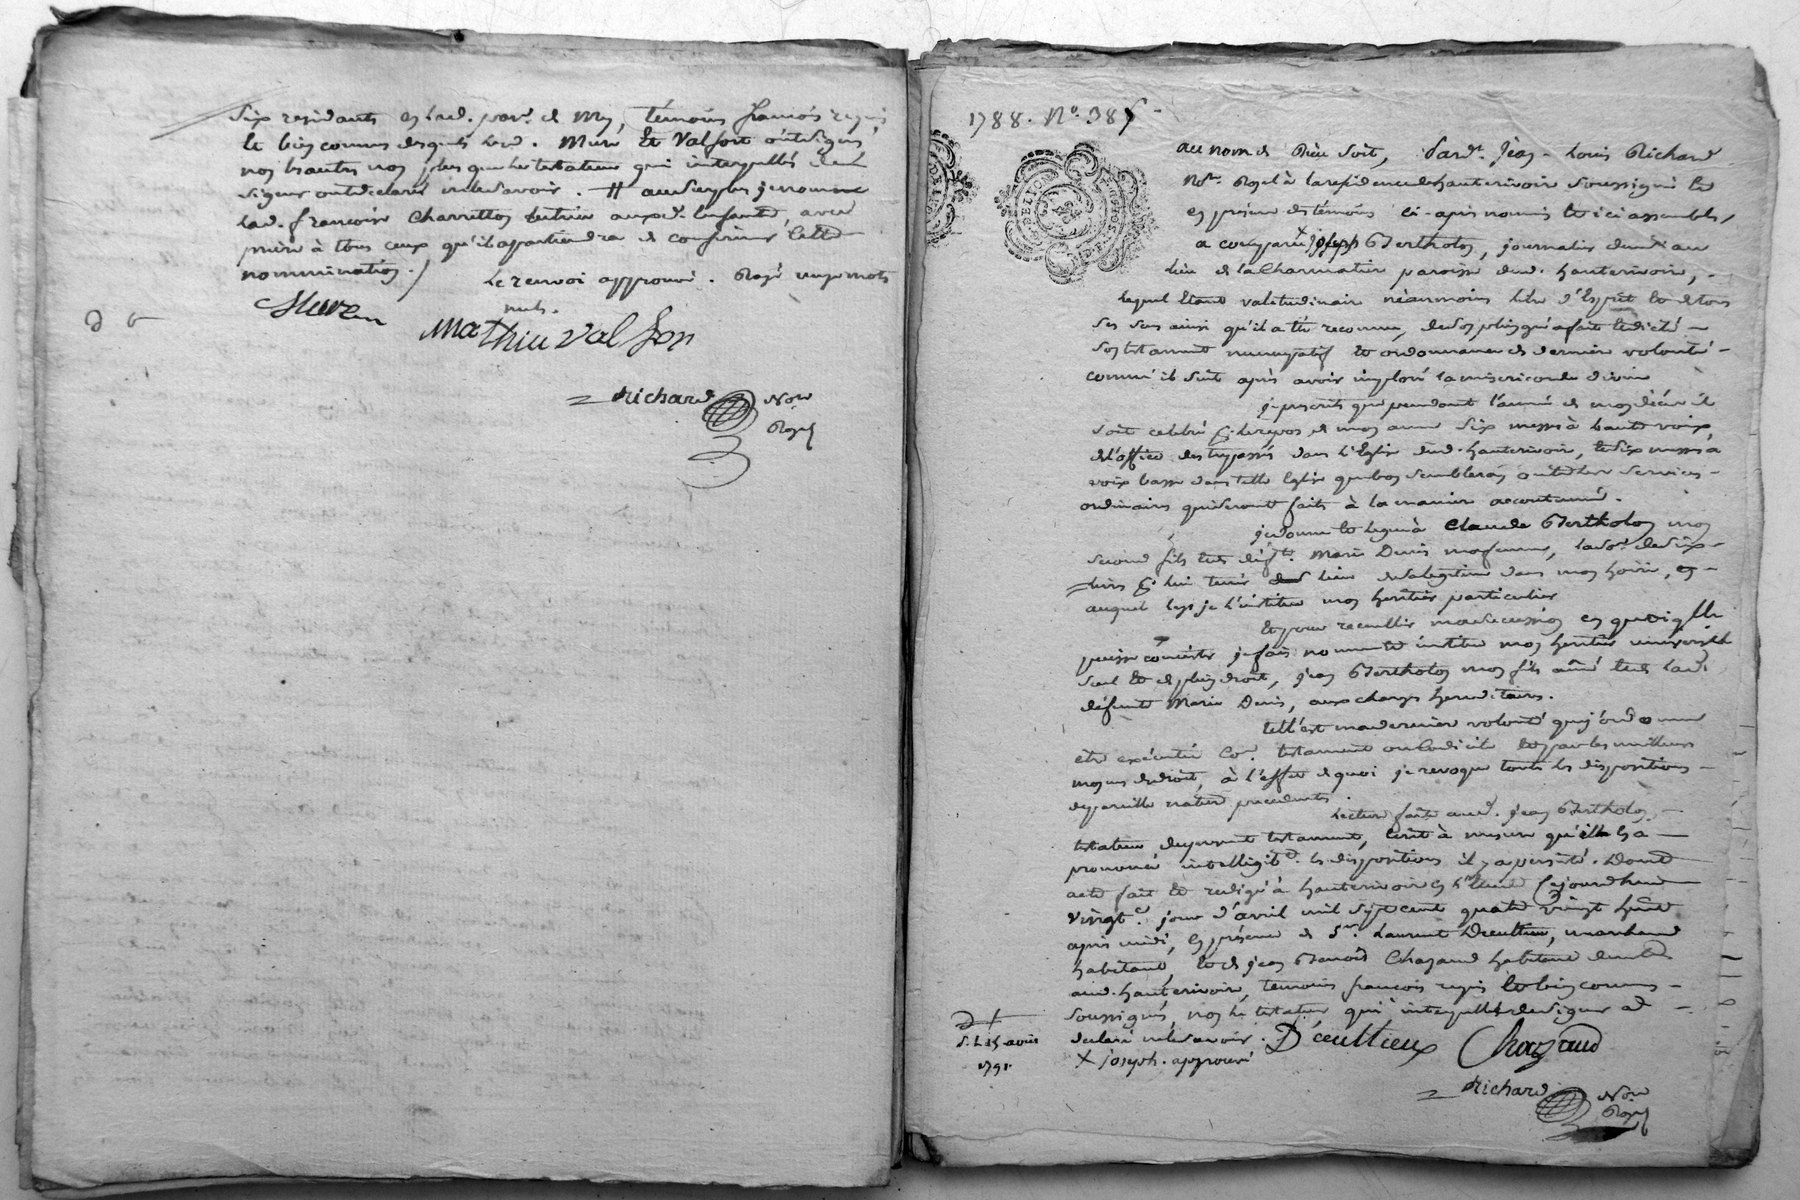 six residants en lad. par. de My, témoins francois regis,
le bien connus desquels led. Muré et Valfort ont signé,
non les autres non plus que led testateur qui interpellés de
signer ont declaré ne le savoir. # au surplus je nomme
lad. francoise Charretton tutrice auxd. enfants, avec
prière à tous ceux qu'il appartiendra de confirmer cette
nommination./
le renvoi approuvé. Rayé mots
nuls.
Mathieu Valfort
Richard Nore
Royal
1788. No. 385
au nom de Dieu soit, Pard. Jean-Louis Richard
Nore. Royal à la résidence de hauterivoire soussigné et
en présence des témoins ci-après nommés et ici assemblés,
a comparu x joseph Bertholon, journalier demt. au
lieu de la Charmatier paroisse dud. hauterivoire,
lequel etant valetudinaire néanmoins libre d'Esprit et de tous
ses sens ainsi qu'il a été reconnu, de son plein gré a fait et dicté
son testament nuncupatif et ordonnance de dernière volonté
comme il suit après avoir imploré la misericorde divine
je prescris que pendant l'année de mon décès il
soit celebré pr. le repos de mon ame six messes à haute voix,
de l'office des trepassés dans l'Eglise dud. hauterivoire, et six messes à
voix basse dans telle Eglise que bon semblera outre les services
ordinaires qui seront faits à la manière accoutumée.
je donne et legue à Claude Bertholon mon
second fils et de déft. Marie Denis ma femme, la so. de six
livres pr. lui tenir lieu de sa legitime dans mon hoirie, en
auquel legs je l'institue mon heritier particulier
et pour recueillir ma succession en quoi qu'elle
puisse consister je fais nomme et institue mon heritier universel
seul et de plein droit, jean Bertholon mon fils ainé et de lad.
défunte Marie Denis, aux charges hereditaires.
tell'est ma dernière volonté que j'ordonne
etre exécutée coe. testament ou codicile et par les meilleurs
moyens de droit, à l'effet de quoi je revoque toutes les dispositions
de pareille nature precedentes.
Lecture faite aud. jean Bertholon
testateur du present testament, ecrit à mesure qu'il en a
prononcé intelligibt. les dispositions il y a persisté. Dont
acte fait et redigé à hauterivoire en l'etude cejourd'hui
vingt jour d'avril mil sept cent quatre vingt huit
après midi, en présence de sr. Laurent Decultieux, marchand
habitant, et de jean Benoit Chazaud habitant
aud. hauterivoire, temoins francois regis et bien connus
soussignés, non le testateur, qui, interpellé de signer a
declaré ne le savoir. Decultieux Chazaud
x joseph. approuvé
d. L. 15 aout
1791.
Richard Nore
Royal